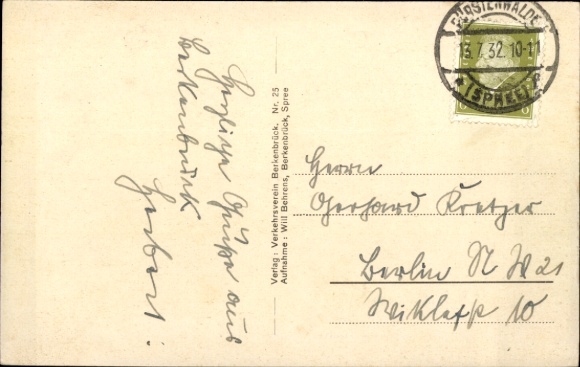 FÜRSTENWALDE
13.7.32.10-11
* (SPREE) P
Herzliche Grüße aus
Berkenbrück
Herbert.
Verlag: Verkehrsverein Berkenbrück. Nr. 25
Aufnahme: Will Behrens, Berkenbrück, Spree
Herrn
Gerhard Kretzer
Berlin N W 21
Wiklefstr 10